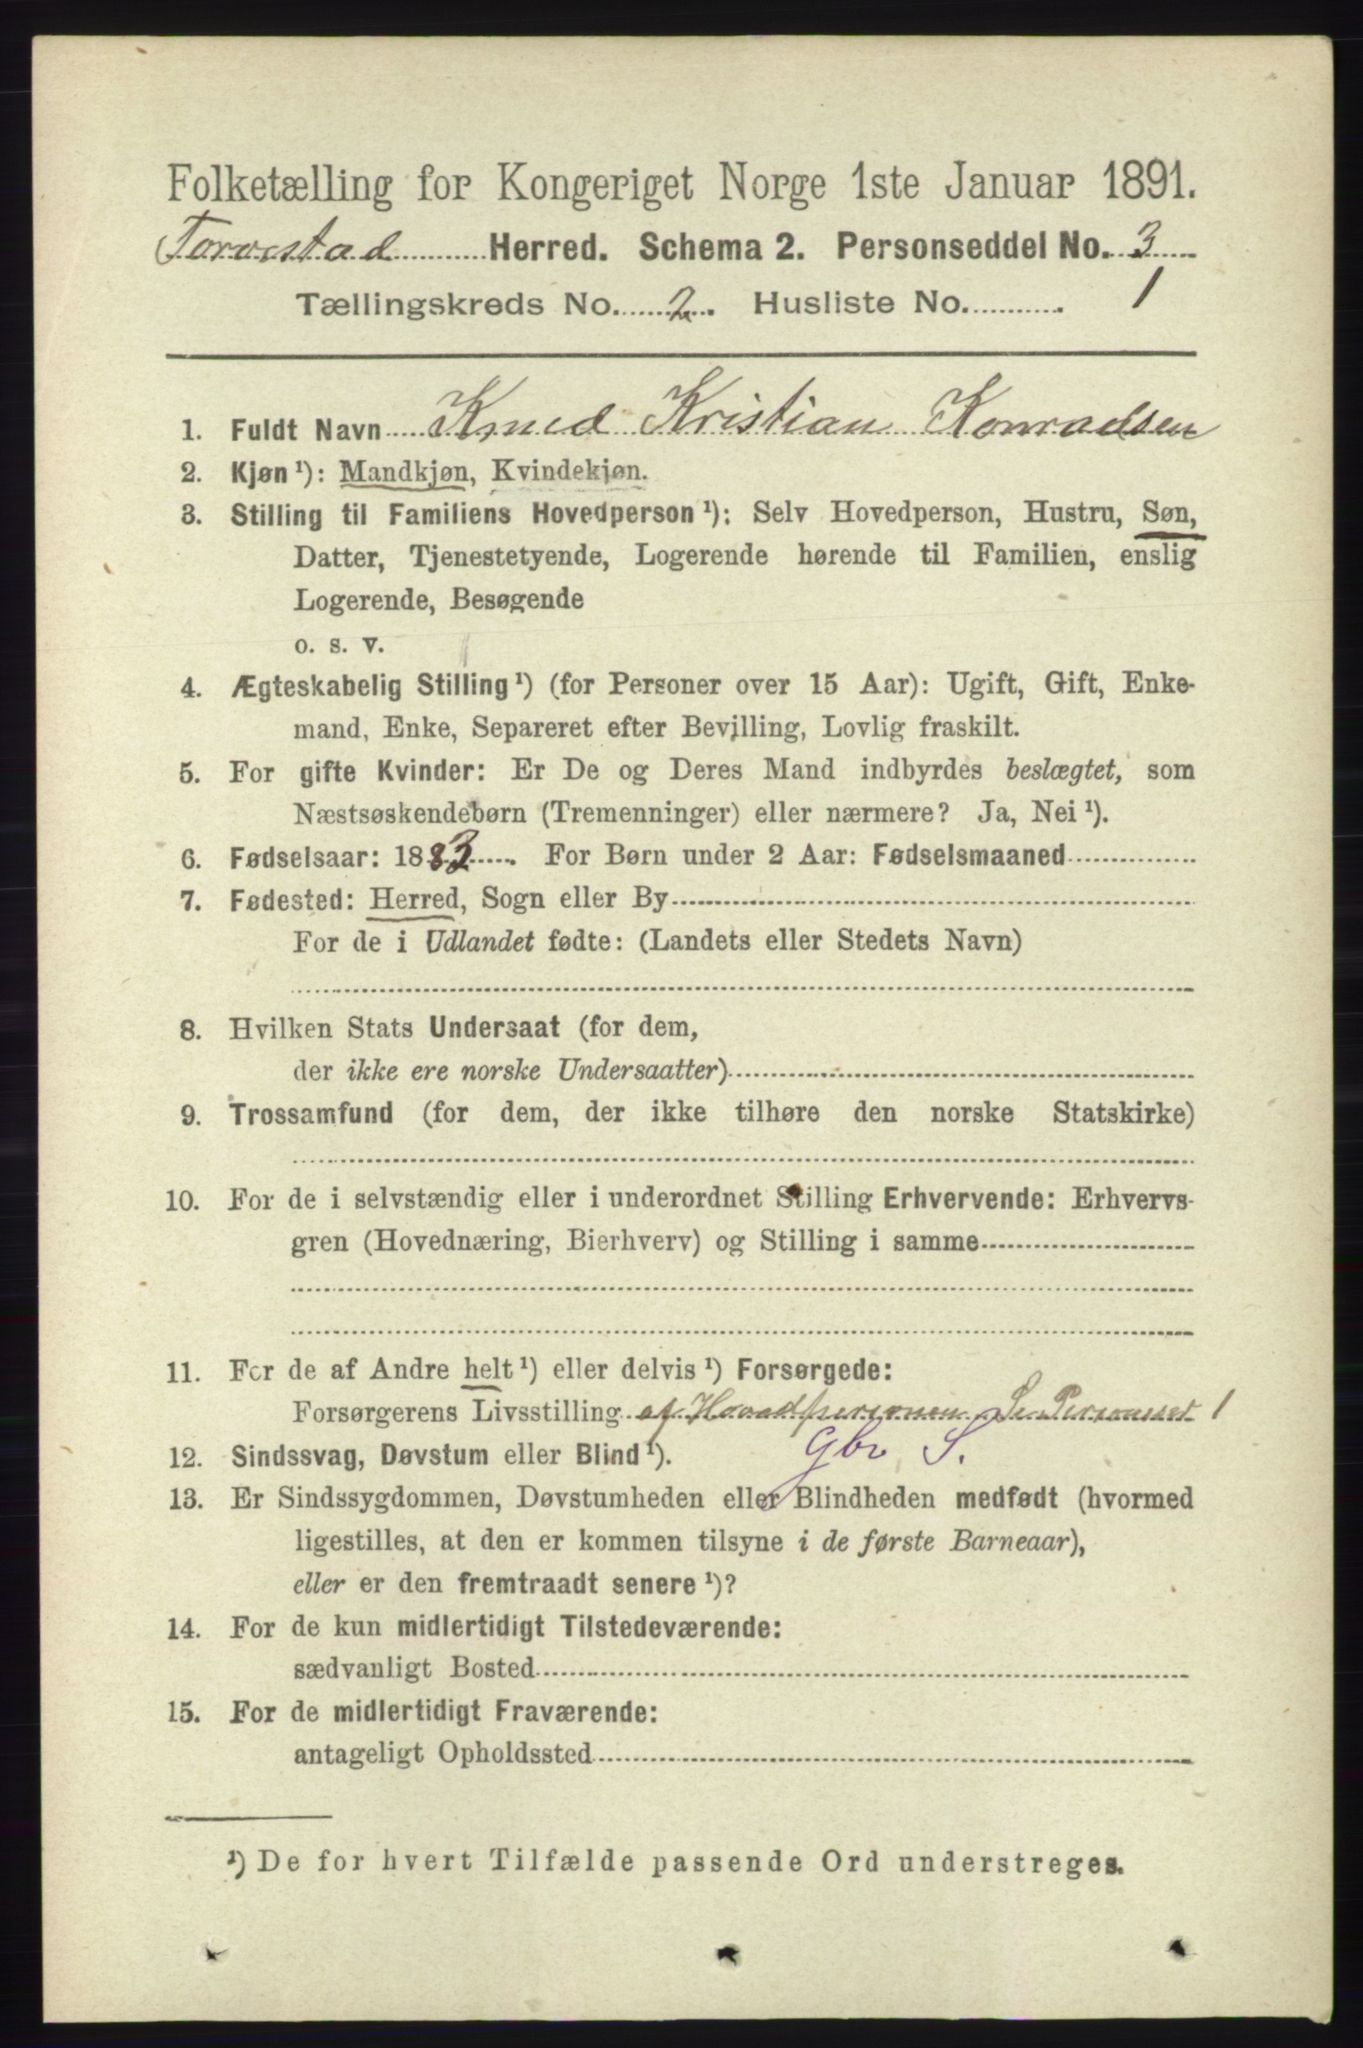 Folketælling for Kongeriget Norge 1ste Januar 1891.
Torvestad Herred. Schema 2. Personseddel No. 3
Tællingskreds No. 2. Husliste No. 1
1. Fuldt Navn Knud Kristian Konradsen
2. Kjøn ¹): Mandkjøn, Kvindekjøn.
3. Stilling til Familiens Hovedperson ¹): Selv Hovedperson, Hustru, Søn,
Datter, Tjenestetyende, Logerende hørende til Familien, enslig
Logerende, Besøgende
o. s. v.
4. Ægteskabelig Stilling ¹) (for Personer over 15 Aar): Ugift, Gift, Enke-
mand, Enke, Separeret efter Bevilling, Lovlig fraskilt.
5. For gifte Kvinder: Er De og Deres Mand indbyrdes beslægtet, som
Næstsøskendebørn (Tremenninger) eller nærmere? Ja, Nei ¹).
6. Fødselsaar: 1883. For Børn under 2 Aar: Fødselsmaaned
7. Fødested: Herred, Sogn eller By
For de i Udlandet fødte: (Landets eller Stedets Navn)
8. Hvilken Stats Undersaat (for dem,
der ikke ere norske Undersaatter)
9. Trossamfund (for dem, der ikke tilhøre den norske Statskirke)
10. For de i selvstændig eller i underordnet Stilling Erhvervende: Erhvervs-
gren (Hovednæring, Bierhverv) og Stilling i samme
11. For de af Andre helt ¹) eller delvis ¹) Forsørgede:
Forsørgerens Livsstilling af Hovedpersonen Se 1
Gbr S.
12. Sindssvag, Døvstum eller Blind ¹).
13. Er Sindssygdommen, Døvstumheden eller Blindheden medfødt (hvormed
ligestilles, at den er kommen tilsyne i de første Barneaar),
eller er den fremtraadt senere ¹)?
14. For de kun midlertidigt Tilstedeværende:
sædvanligt Bosted
15. For de midlertidigt Fraværende:
antageligt Opholdssted
¹) De for hvert Tilfælde passende Ord understreges.